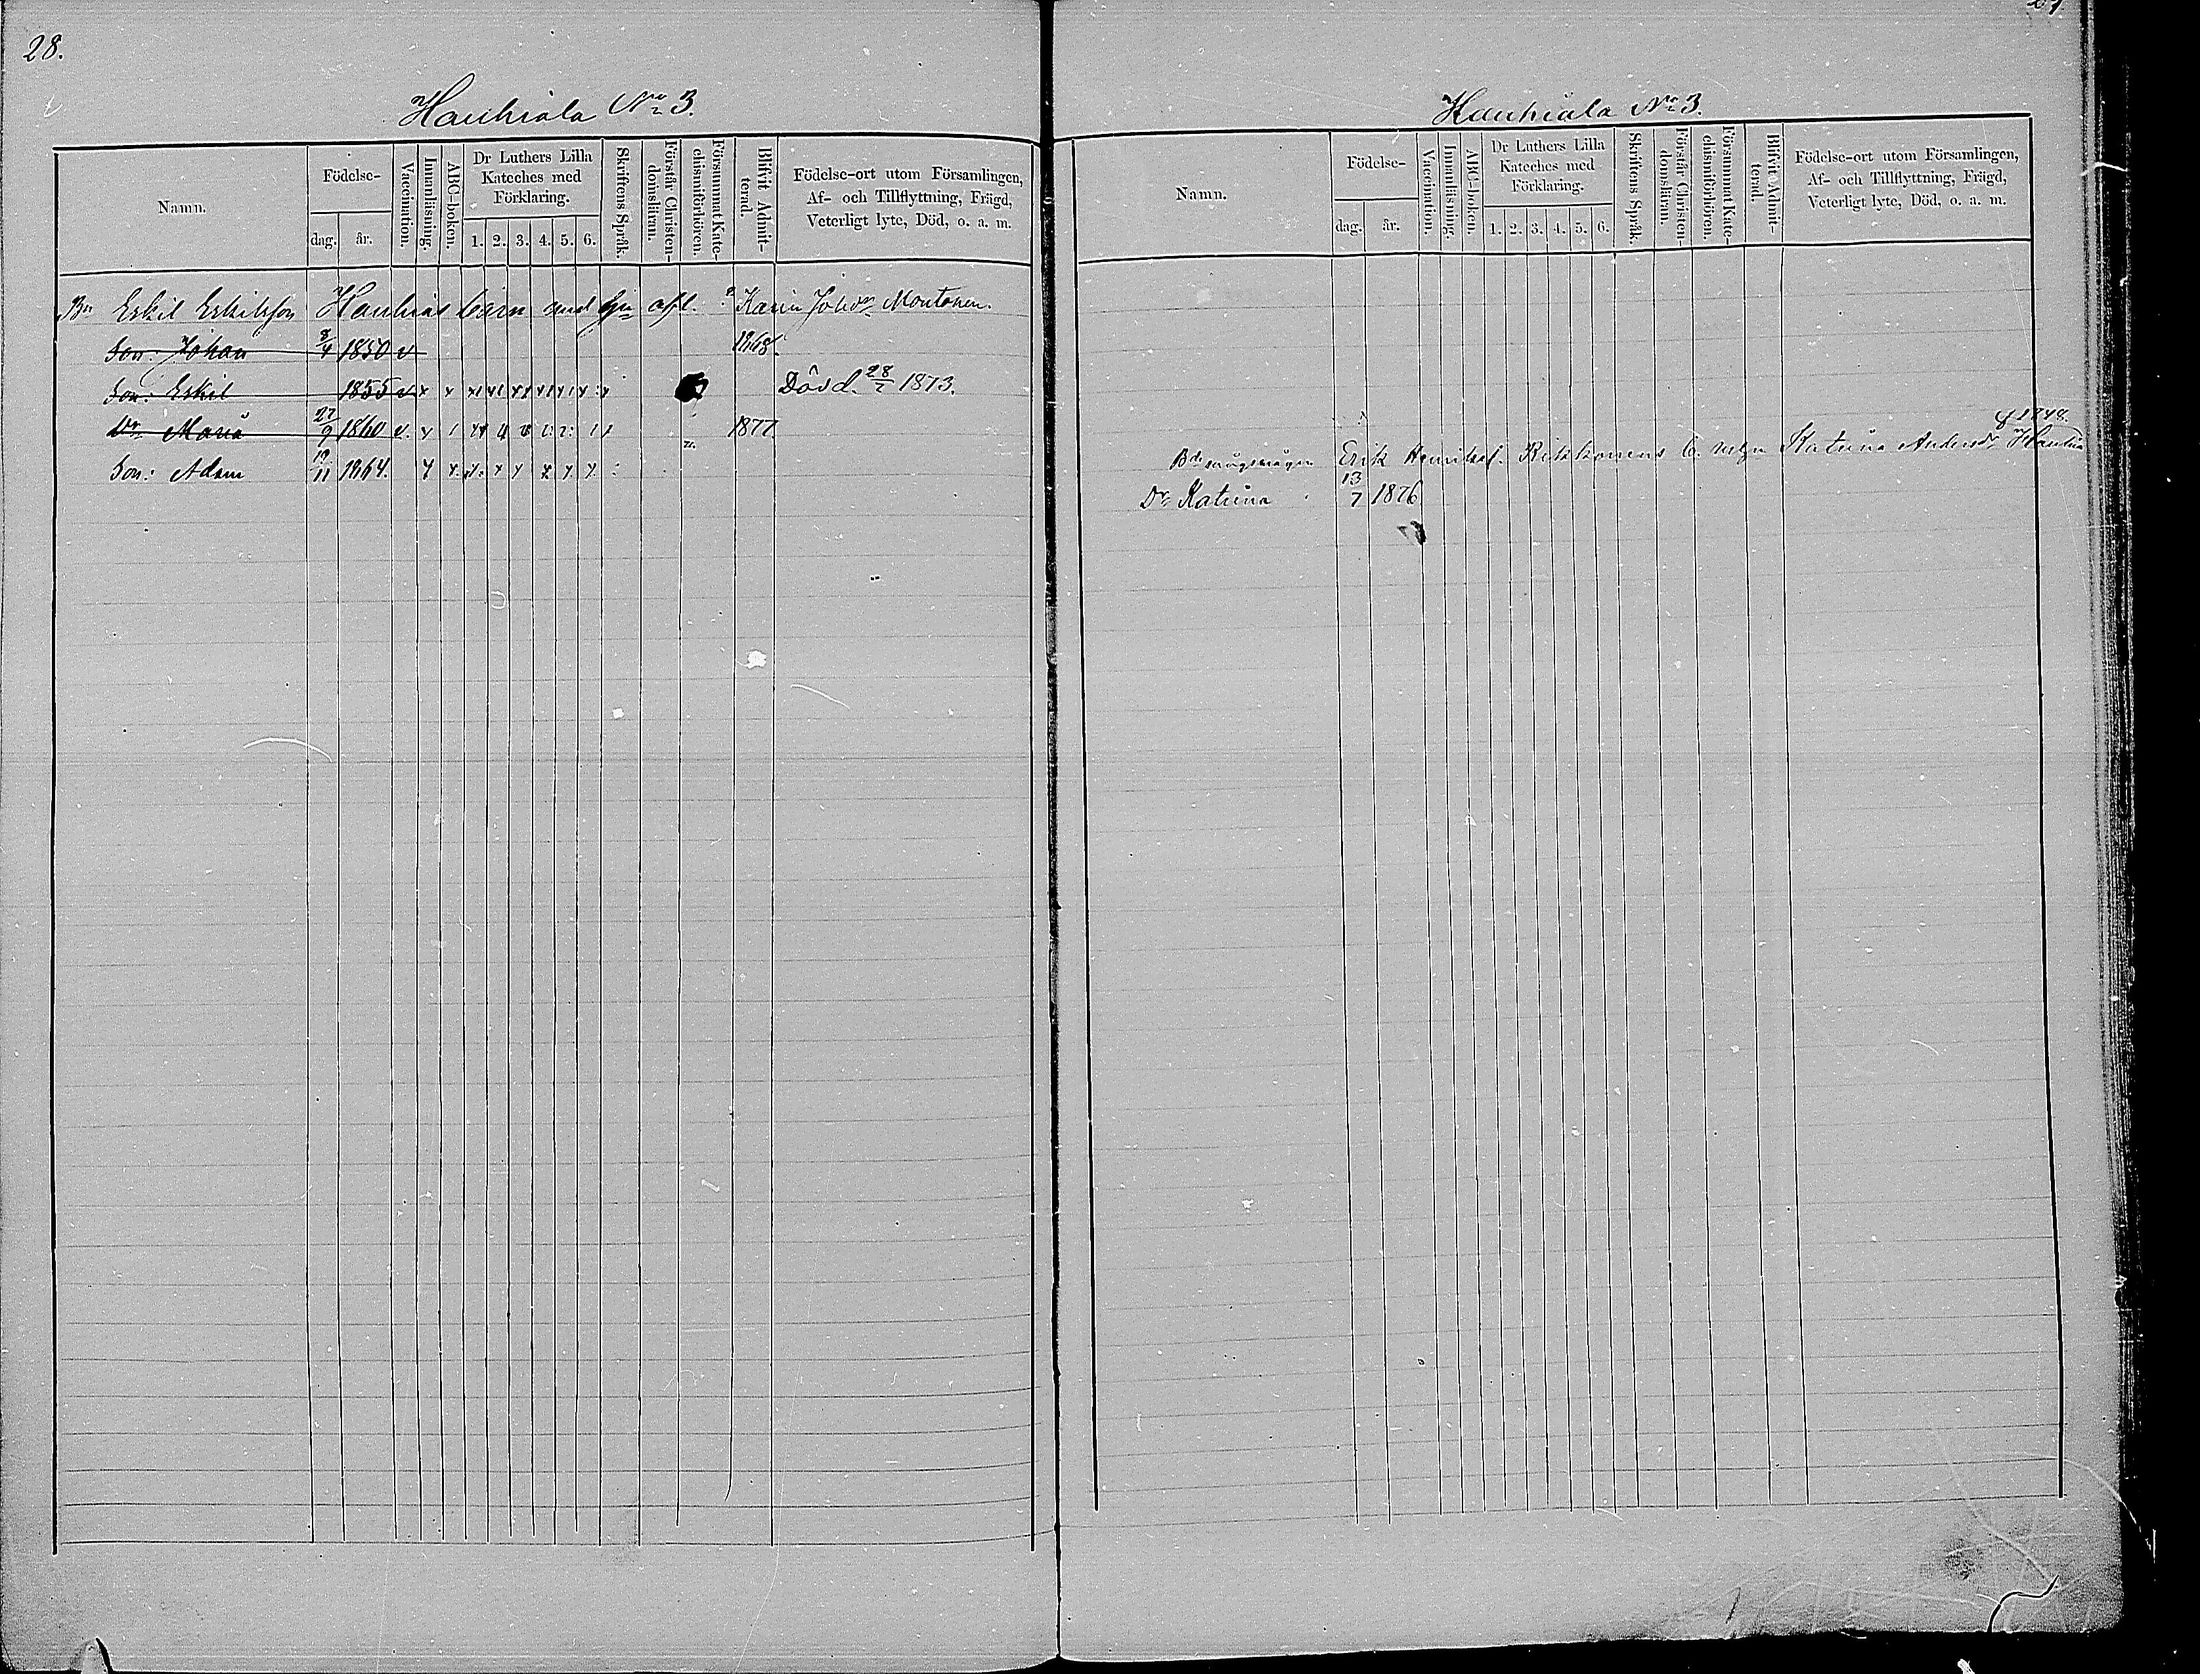 28.
Hauhiala No 3.
Namn.
Födelse-
dag.
år.
Vaccination.
Innanläsning.
ABC-boken.
Dr Luthers Lilla
Kateches med
Förklaring.
1. 2. 3. 4. 5. 6.
Skriftens Språk.
Förstår Christen-
domsläran.
Försummat Kate-
chismiförhören.
Blifvit Admit-
terad.
Födelse-ort utom Församlingen,
Af- och Tillflyttning, Frägd,
Veterligt lyte, Död, o. a. m.
Bn Eskil Eskilsson Hauhias barn med Karin Johsdr Montonen.
Son: Johan 8/4 1850 v 1868.
Son: Eskil 1855 v x x Död d. 28/2 1873.
Dr Maria 27/9 1860 v. 1877
Son: Adam 19/11 1864.
Hauhiala No 3.
Namn.
Födelse-
dag.
år.
Vaccination.
Innanläsning.
ABC-boken.
Dr Luthers Lilla
Kateches med
Förklaring.
1. 2. 3. 4. 5. 6.
Skriftens Språk.
Förstår Christen-
domsläran.
Försummat Kate-
chismiförhören.
Blifvit Admit-
terad.
Födelse-ort utom Församlingen,
Af- och Tillflyttning, Frägd,
Veterligt lyte, Död, o. a. m.
1848.
Erik Henriksf. b. m Katrina Andersdr Hauhia
Dr Katrina 13/7 1876